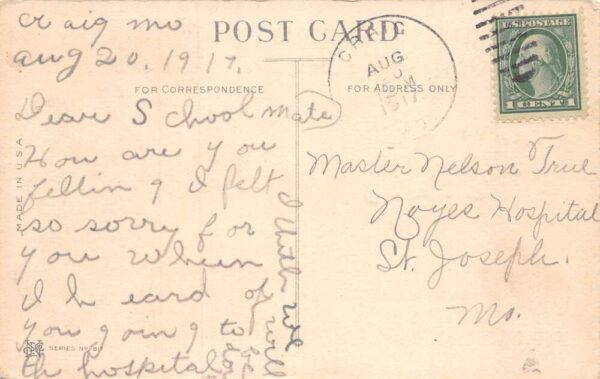 craig mo
aug 20, 1917.
POST CARD
FOR CORRESPONDENCE
FOR ADDRESS ONLY
MADE IN U.S.A
Dear School mate
How are you
fellin g I felt
so sorry for
you when
I heard of
you going to
th hospital
I think we
will
Master Nelson True
Noyes Hospital
St. Joseph.
Mo.
CRAIG
AUG
1917
MO
U.S. POSTAGE
1 CENT 1
SERIES No.